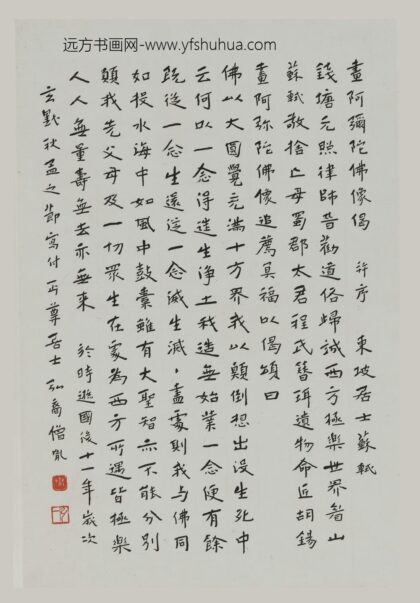 远方书画网-www.yfshuhua.com
畫阿彌陀佛像偈 并序 東坡居士蘇軾
錢塘元照律師普勸道俗歸誠西方極樂世界眉山
蘇軾敬捨亡母蜀郡太君程氏簪珥遺物命匠胡錫
畫阿弥陀佛像追薦冥福以偈頌曰
佛以大圓覺充滿十方界我以顛倒想出沒生死中
云何以一念得往生淨土我造無始業一念便有餘
既從一念生還從一念滅生滅〻盡處則我與佛同
如投水海中如風中鼓橐雖有大聖智亦不能分別
願我先父母及一切眾生在處為西方所遇皆極樂
人人無量壽無去亦無來 於時遜國後十一年歲次
玄黓秋孟之節寫付丏尊居士 弘裔僧胤